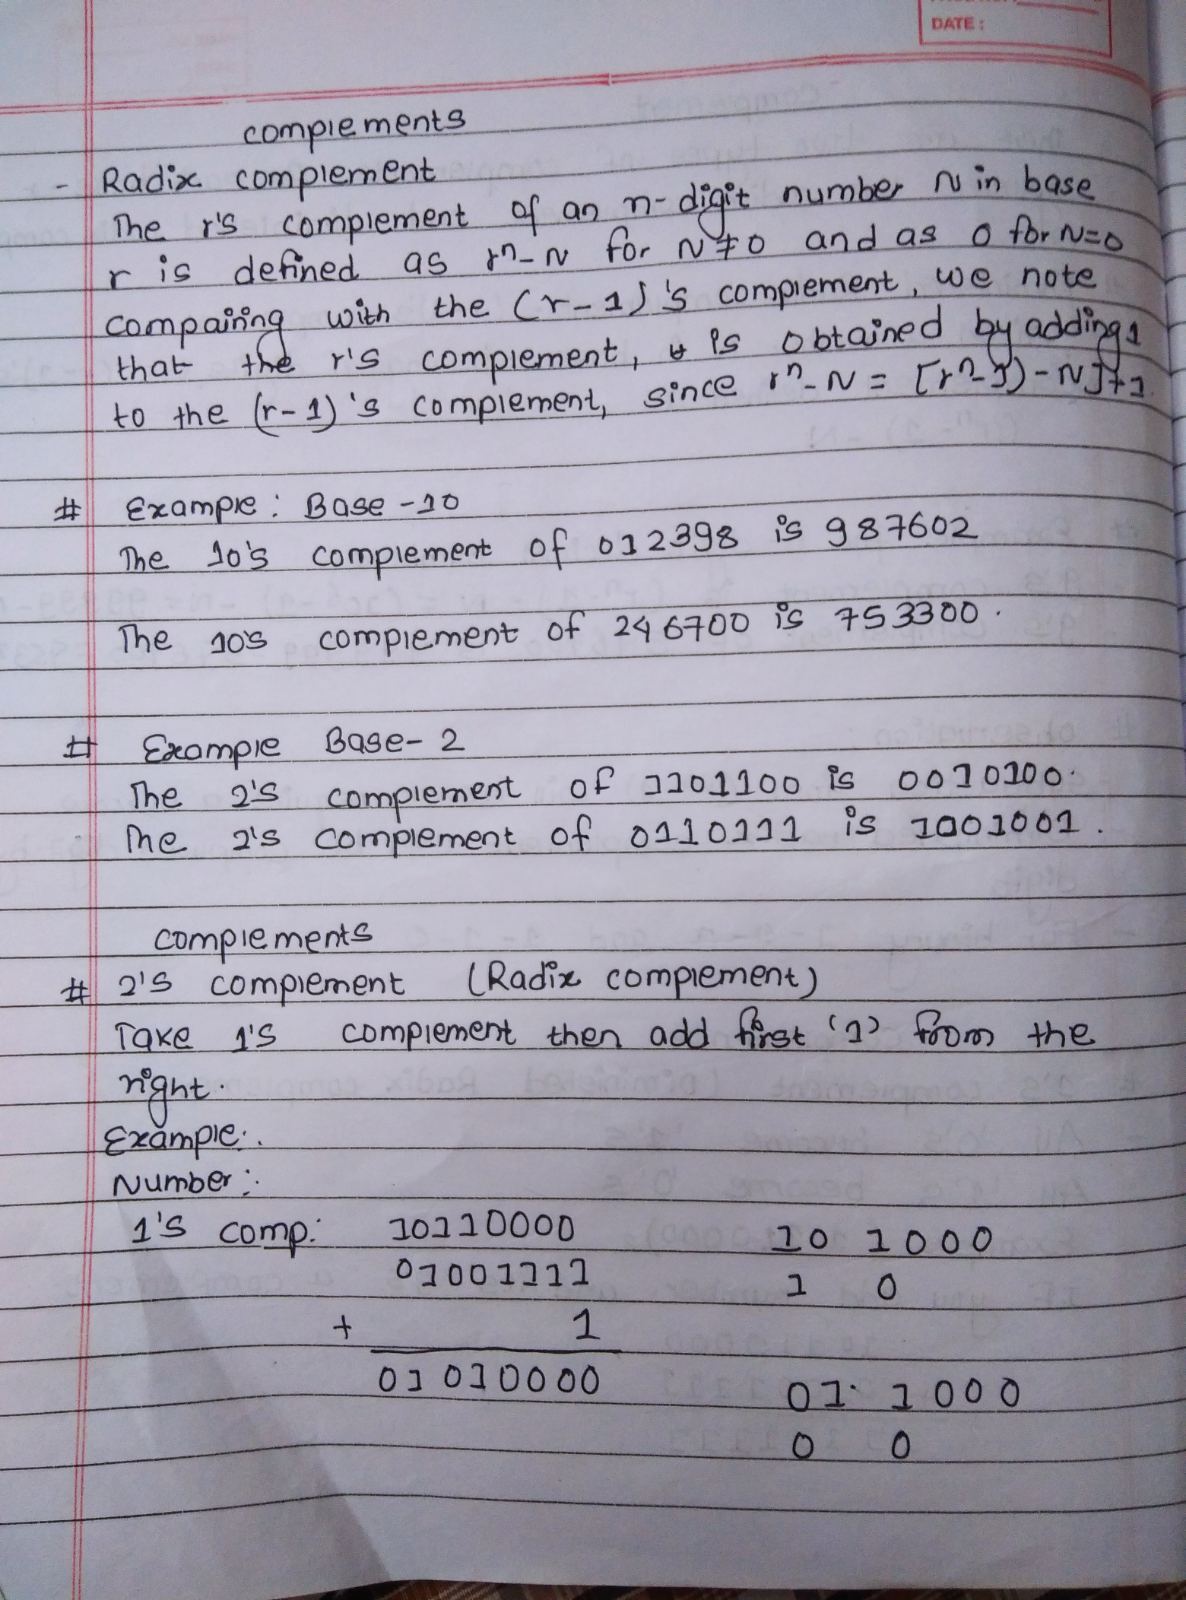 DATE :
complements
- Radix complement
The r's complement of an n-digit number N in base
r is defined as rⁿ-N for N≠0 and as 0 for N=0
compairing with the (r-1)'s complement, we note
that the r's complement, is obtained by adding 1
to the (r-1)'s complement, since rⁿ-N = [rⁿ-1)-N]+1.
# Example: Base -10
The 10's complement of 012398 is 987602
The 10's complement of 246700 is 753300.
# Example Base-2
The 2's complement of 1101100 is 0010100.
The 2's complement of 0110111 is 1001001.
complements
# 2's complement (Radix complement)
Take 1's complement then add first '1' from the
right.
Example:.
Number:.
1's comp: 10110000 10 1000
01001111 1 0
+ 1
01010000 01. 1000
0 0